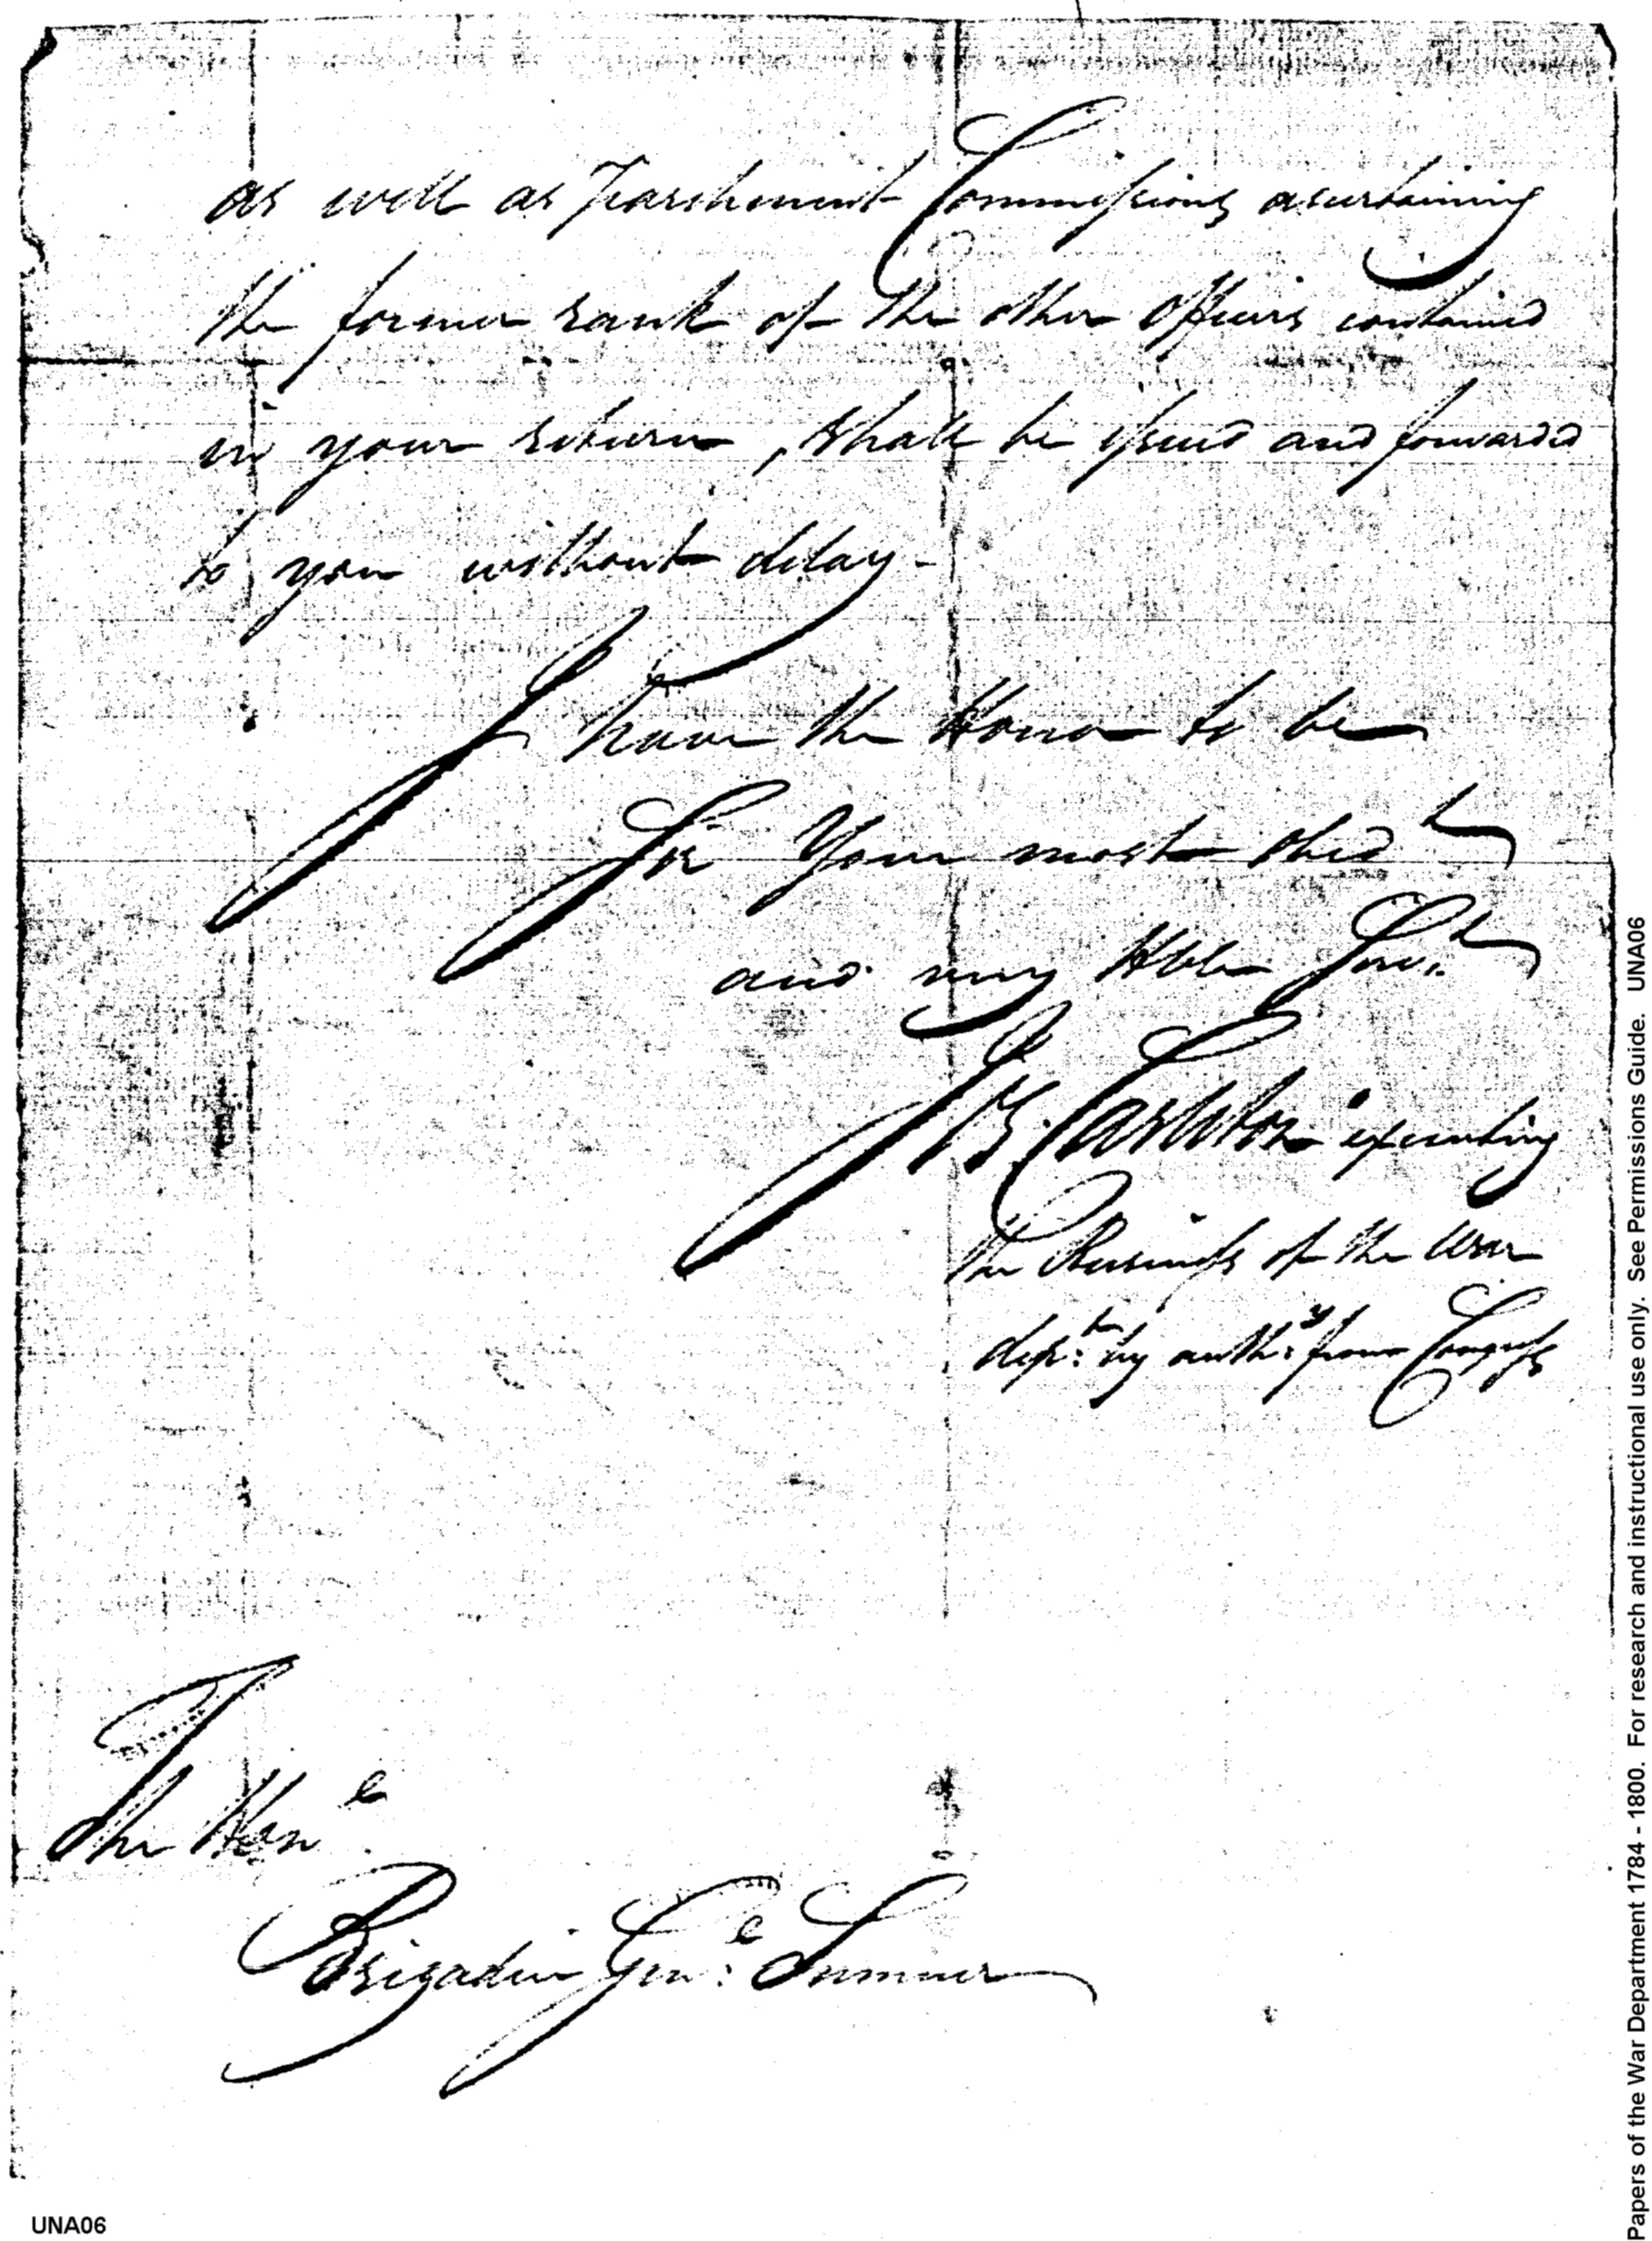 as well as Parchment Commissions ascertaining
the former rank of the other Officers contained
in your return, shall be issued and forwarded
to you without delay-
I have the Honor to be
Sir Your most obedt
and very Hble Servt
J Carleton executing
the Business of the War
dept: by authy: from Congress
The Hone
Brigadier Gene: Sumner
UNA06
Papers of the War Department 1784 - 1800. For research and instructional use only. See Permissions Guide. UNA06